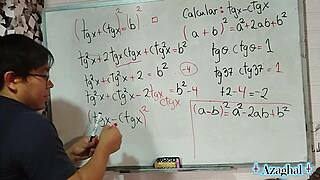 (tgx+ctgx)²=b²
tg²x+2tgxctgx+ctg²x=b²
tg²x+ctg²x+2=b²
tg²x+ctg²x-2tgx ctgx=b²-4
(tgx-ctgx)²
Calcular: tgx-ctgx
(a+b)²=a²+2ab+b²
tgθ ctgθ=1
tg37 ctg37=1
-4
+2-4=-2
(a-b)²=a²-2ab+b²
Azaghal